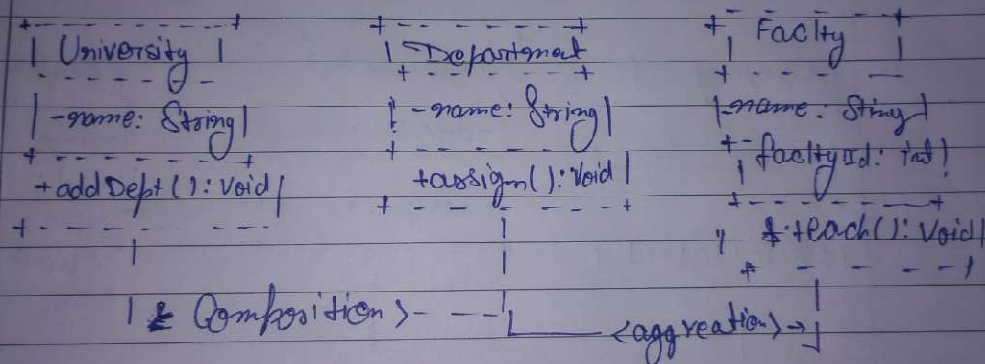 University
-name: String
+addDept(): Void
Department
-name: String
+assign(): Void
Faclty
-name: Sting
facltyId: int
+teach(): Void
<Composition>
<aggreation>